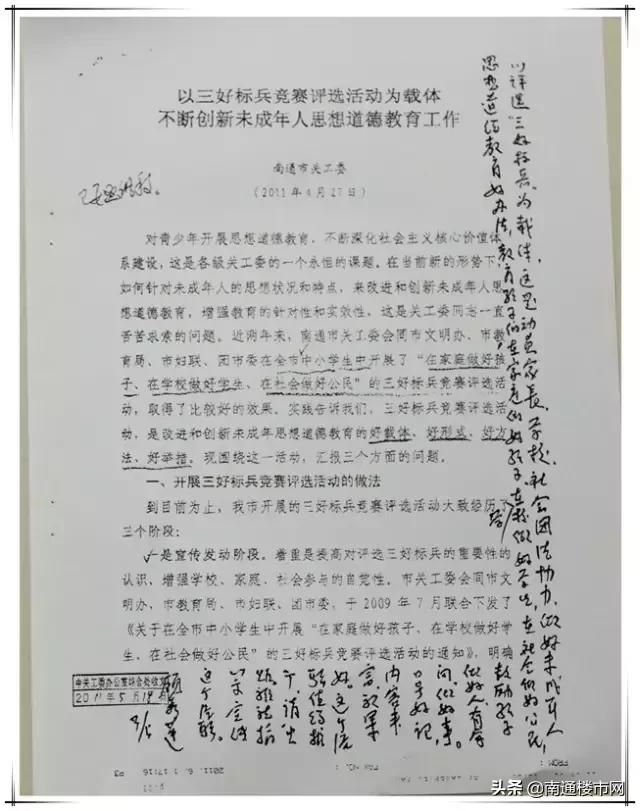 以三好标兵竞赛评选活动为载体
不断创新未成年人思想道德教育工作
南通市关工委
（2011年4月27日）
对青少年开展思想道德教育，不断深化社会主义核心价值体
系建设，这是各级关工委的一个永恒的课题。在当前新的形势下，
如何针对未成年人的思想状况和特点，来改进和创新未成年人思
想道德教育，增强教育的针对性和实效性，这是关工委同志一直
苦苦求索的问题。近两年来，南通市关工委会同市文明办、市教
育局、市妇联、团市委在全市中小学生中开展了“在家庭做好孩
子、在学校做好学生、在社会做好公民”的三好标兵竞赛评选活
动，取得了比较好的效果。实践告诉我们，三好标兵竞赛评选活
动，是改进和创新未成年思想道德教育的好载体、好形式、好方
法、好举措。现围绕这一活动，汇报三个方面的问题。
一、开展三好标兵竞赛评选活动的做法
到目前为止，我市开展的三好标兵竞赛评选活动大致经历了
三个阶段：
一是宣传发动阶段。着重是提高对评选三好标兵的重要性的
认识，增强学校、家庭、社会参与的自觉性。市关工委会同市文
明办、市教育局、市妇联、团市委，于2009年7月联合下发了
《关于在全市中小学生中开展“在家庭做好孩子、在学校做好学
生、在社会做好公民”的三好标兵竞赛评选活动的通知》，明确
以评选“三好标兵”为载体，这是动员家长、学校、社会团结协力，做好未成年人
思想道德教育好办法，教育孩子们在家庭做好孩子，在校做好学生，在社会做好公民，
鼓励孩子
做好人有学
问，做好事。
口号好记，
内容丰
富效果
好。这个
顾秀莲
中关工委办公室综合处收文
2011年5月19日
2011. 6. 1 17:16
P3
FAX NO. :
FROM :
头条 @南通楼市网